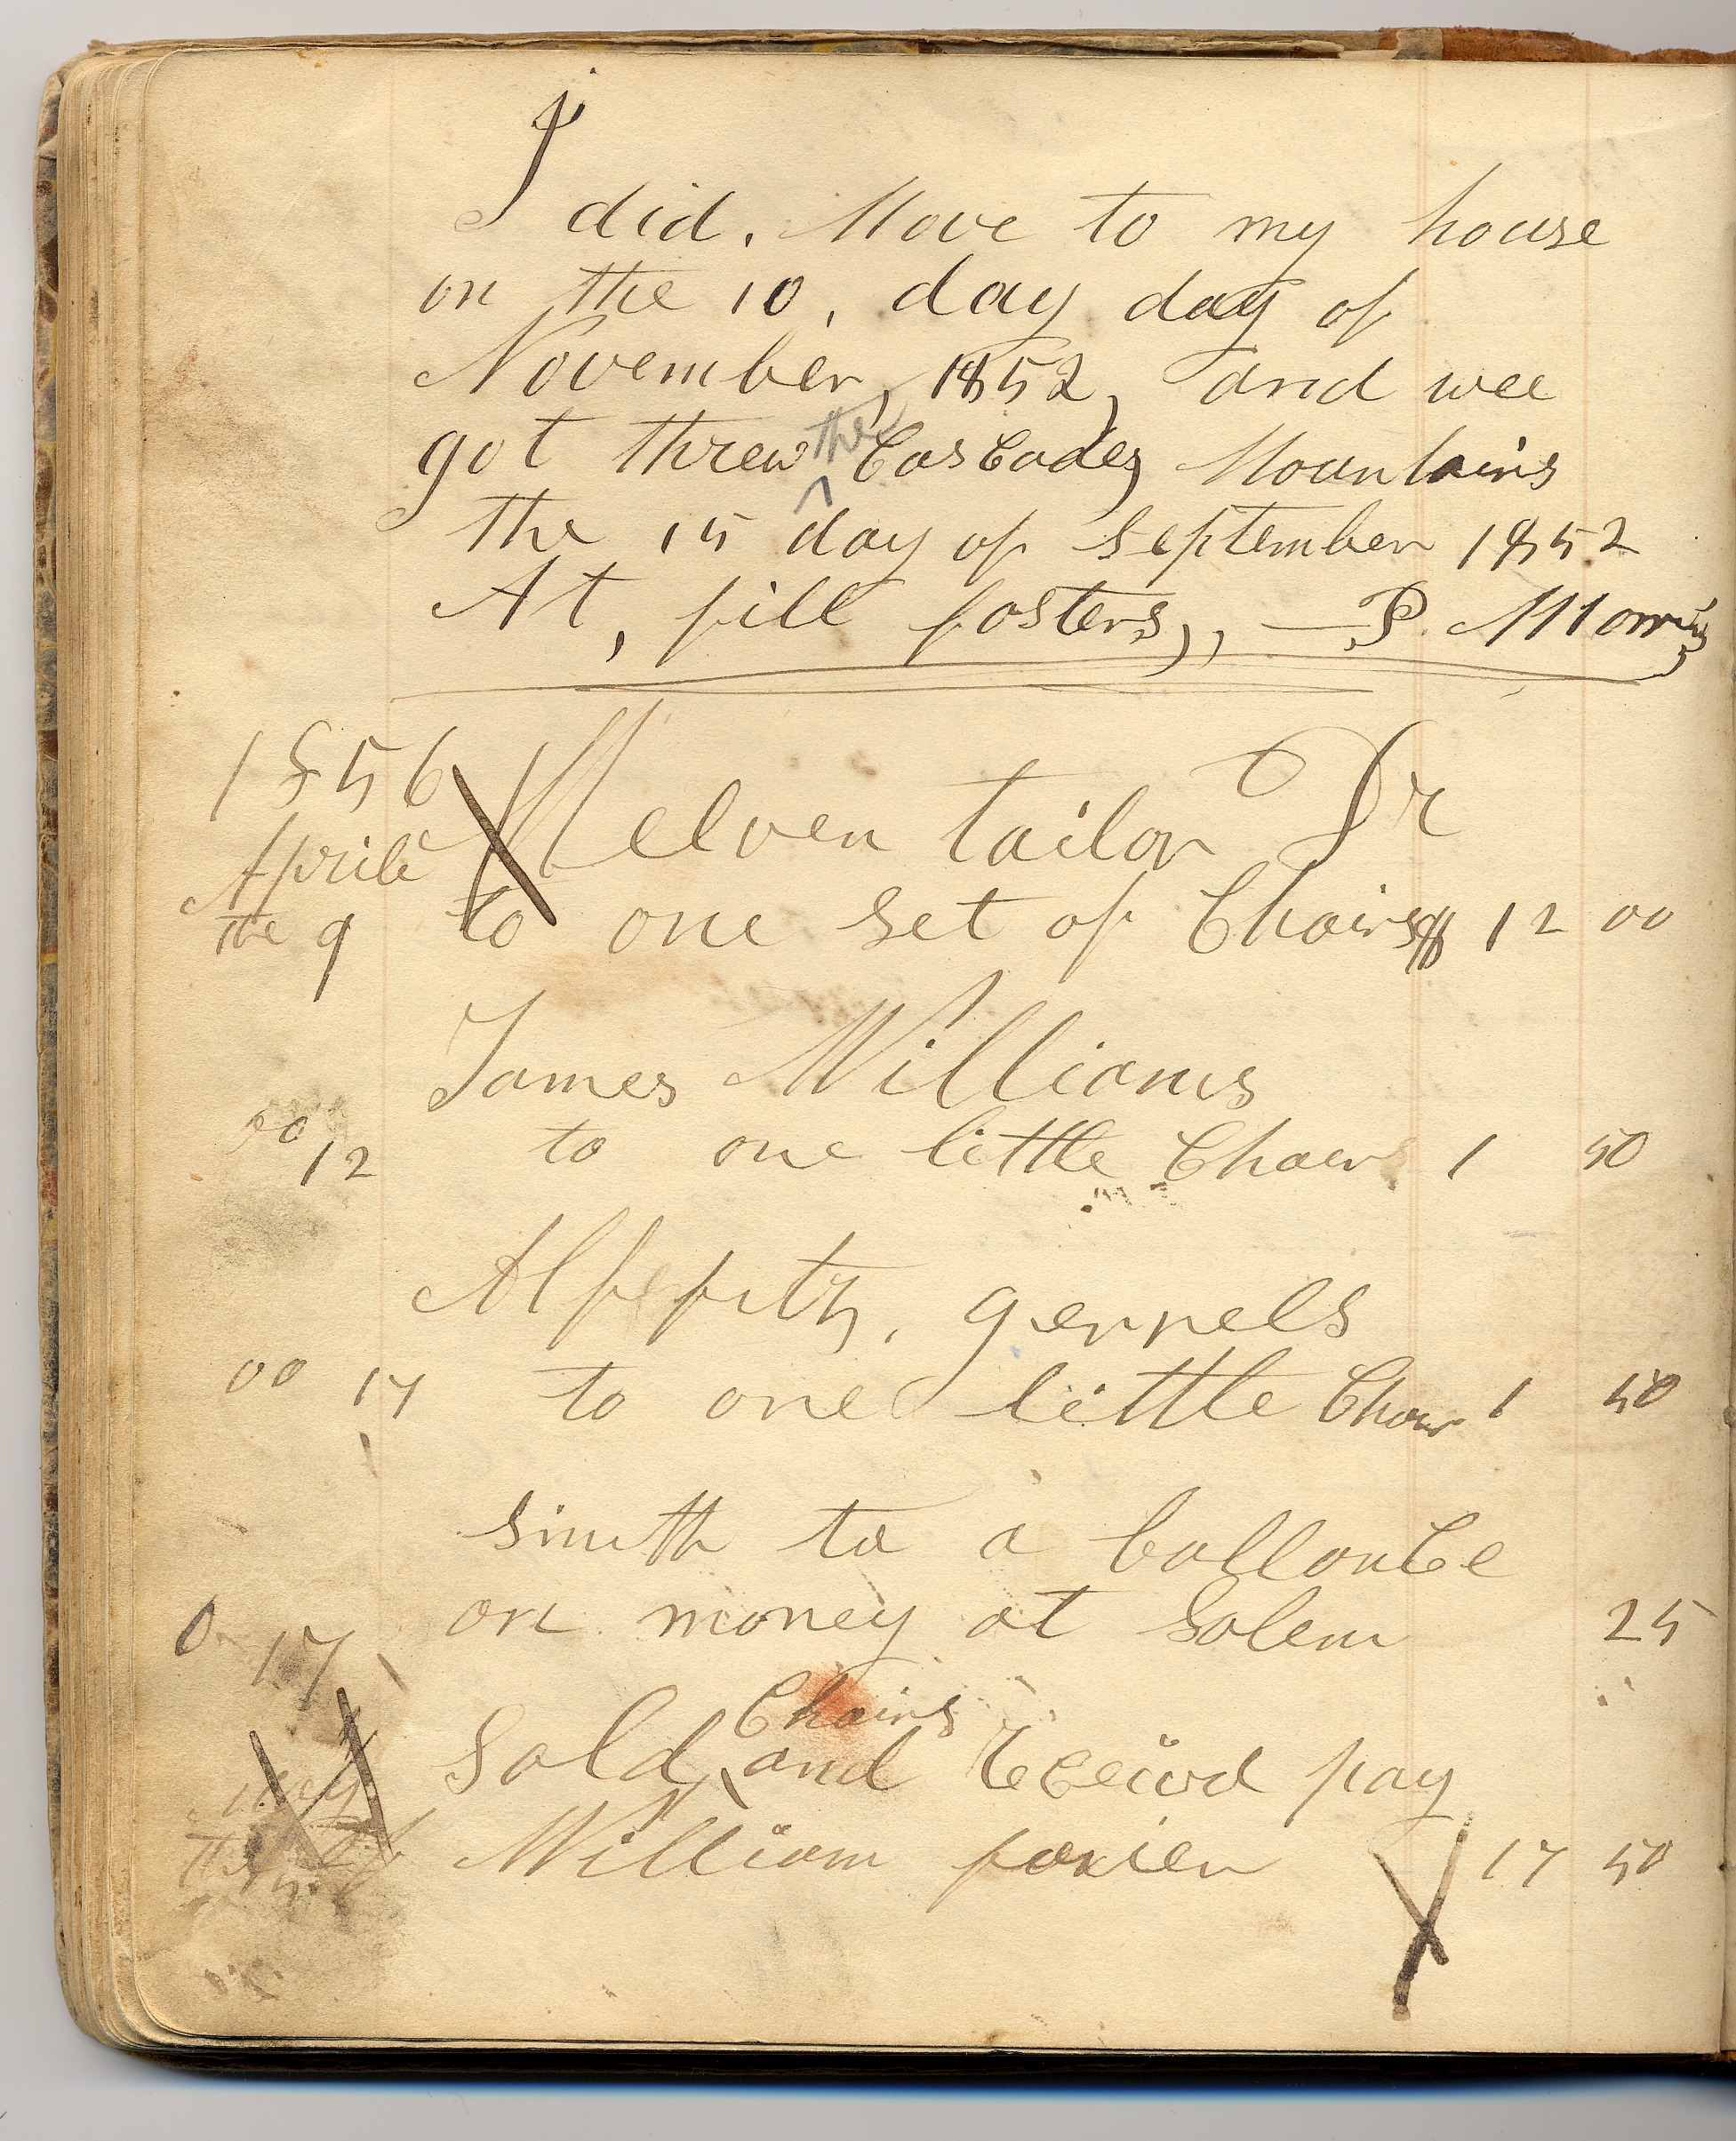 I did. Move to my house
on the 10, day day of
November, 1852, and wee
got threw the Cascades Mountains
the 15 day of September 1852
At, fill fosters,, — P Morris
1856 Melven tailor Dr
Aprile
the 9 to one set of Chairs $ 12 00
James Williams
00 12 to one little Chaer 1 50
Alf fitz, gerrels
00 17 to one little Chair 1 50
smith to a ballonce
on money at Salem 25
0 17
Chairs
Sold and receivd pay
may
the William 17 50